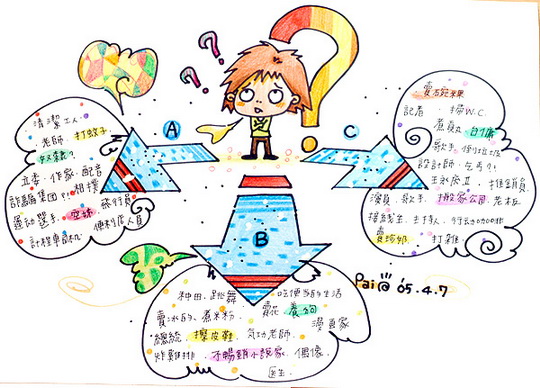 A
清潔工人.
老師. 打蚊子
立委. 作家. 配音
詐騙集團. 相撲
運動選手. 空姐. 銀行員
計程車司機. 便利店人員
B
種田. 跳舞. 吃便當的生活
賣冰的. 煮米粉. 賣花. 養狗
總統. 擦皮鞋. 氣功老師. 漫畫家
炸雞排. 不暢銷小說家. 偶像.
醫生.
C
記者. 掃W.C.
歌手. 撿垃圾
設計師. 乞丐
推銷員
演員. 歌手. 搬家公司. 老板
主持人. 行動咖啡
打雜.
Pai@ '05.4.7